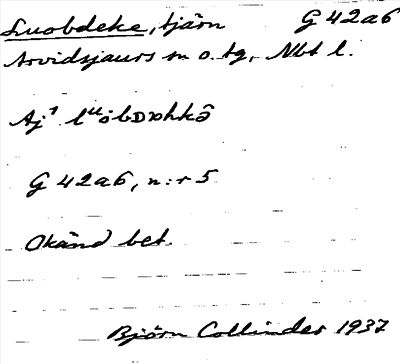 Luobdeke, tjärn G 42a6
Arvidsjaurs sn o. tg, Nbt l.
Aj¹ lᵘobDᴅhkə̑
G 42a6, n:r 5
Okänd bet.
Björn Collinder 1937